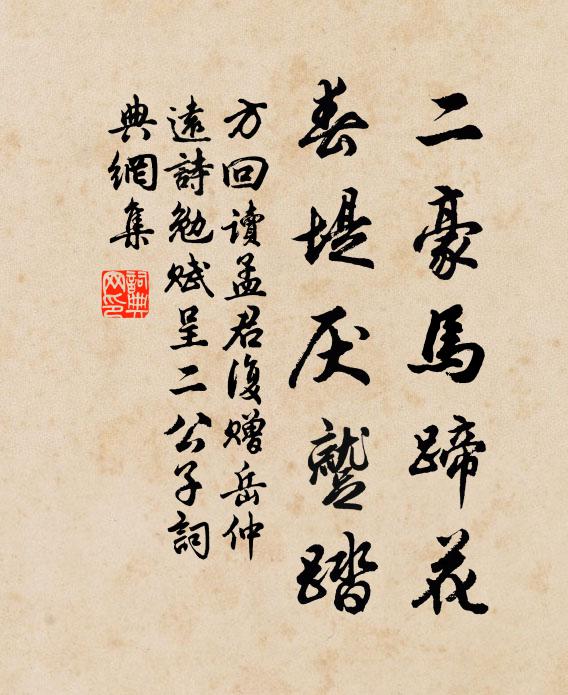 二豪馬蹄花
春堤厌蹵踏
方回讀孟君復赠岳仲
遠詩勉赋呈二公子詞
典網集
詞典
网印